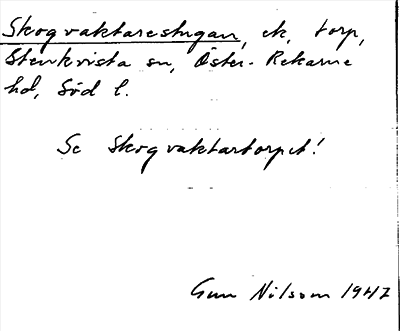 Skogvaktarestugan, ek, torp,
Stenkvista sn, Öster-Rekarne
hd, Söd l.
Se Skogvaktartorpet!
Gun Nilsson 1947